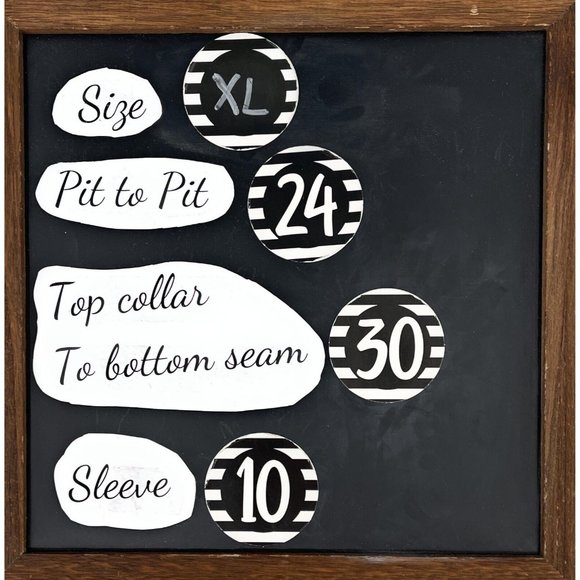 Size XL
Pit to Pit 24
Top collar
To bottom seam 30
Sleeve 10